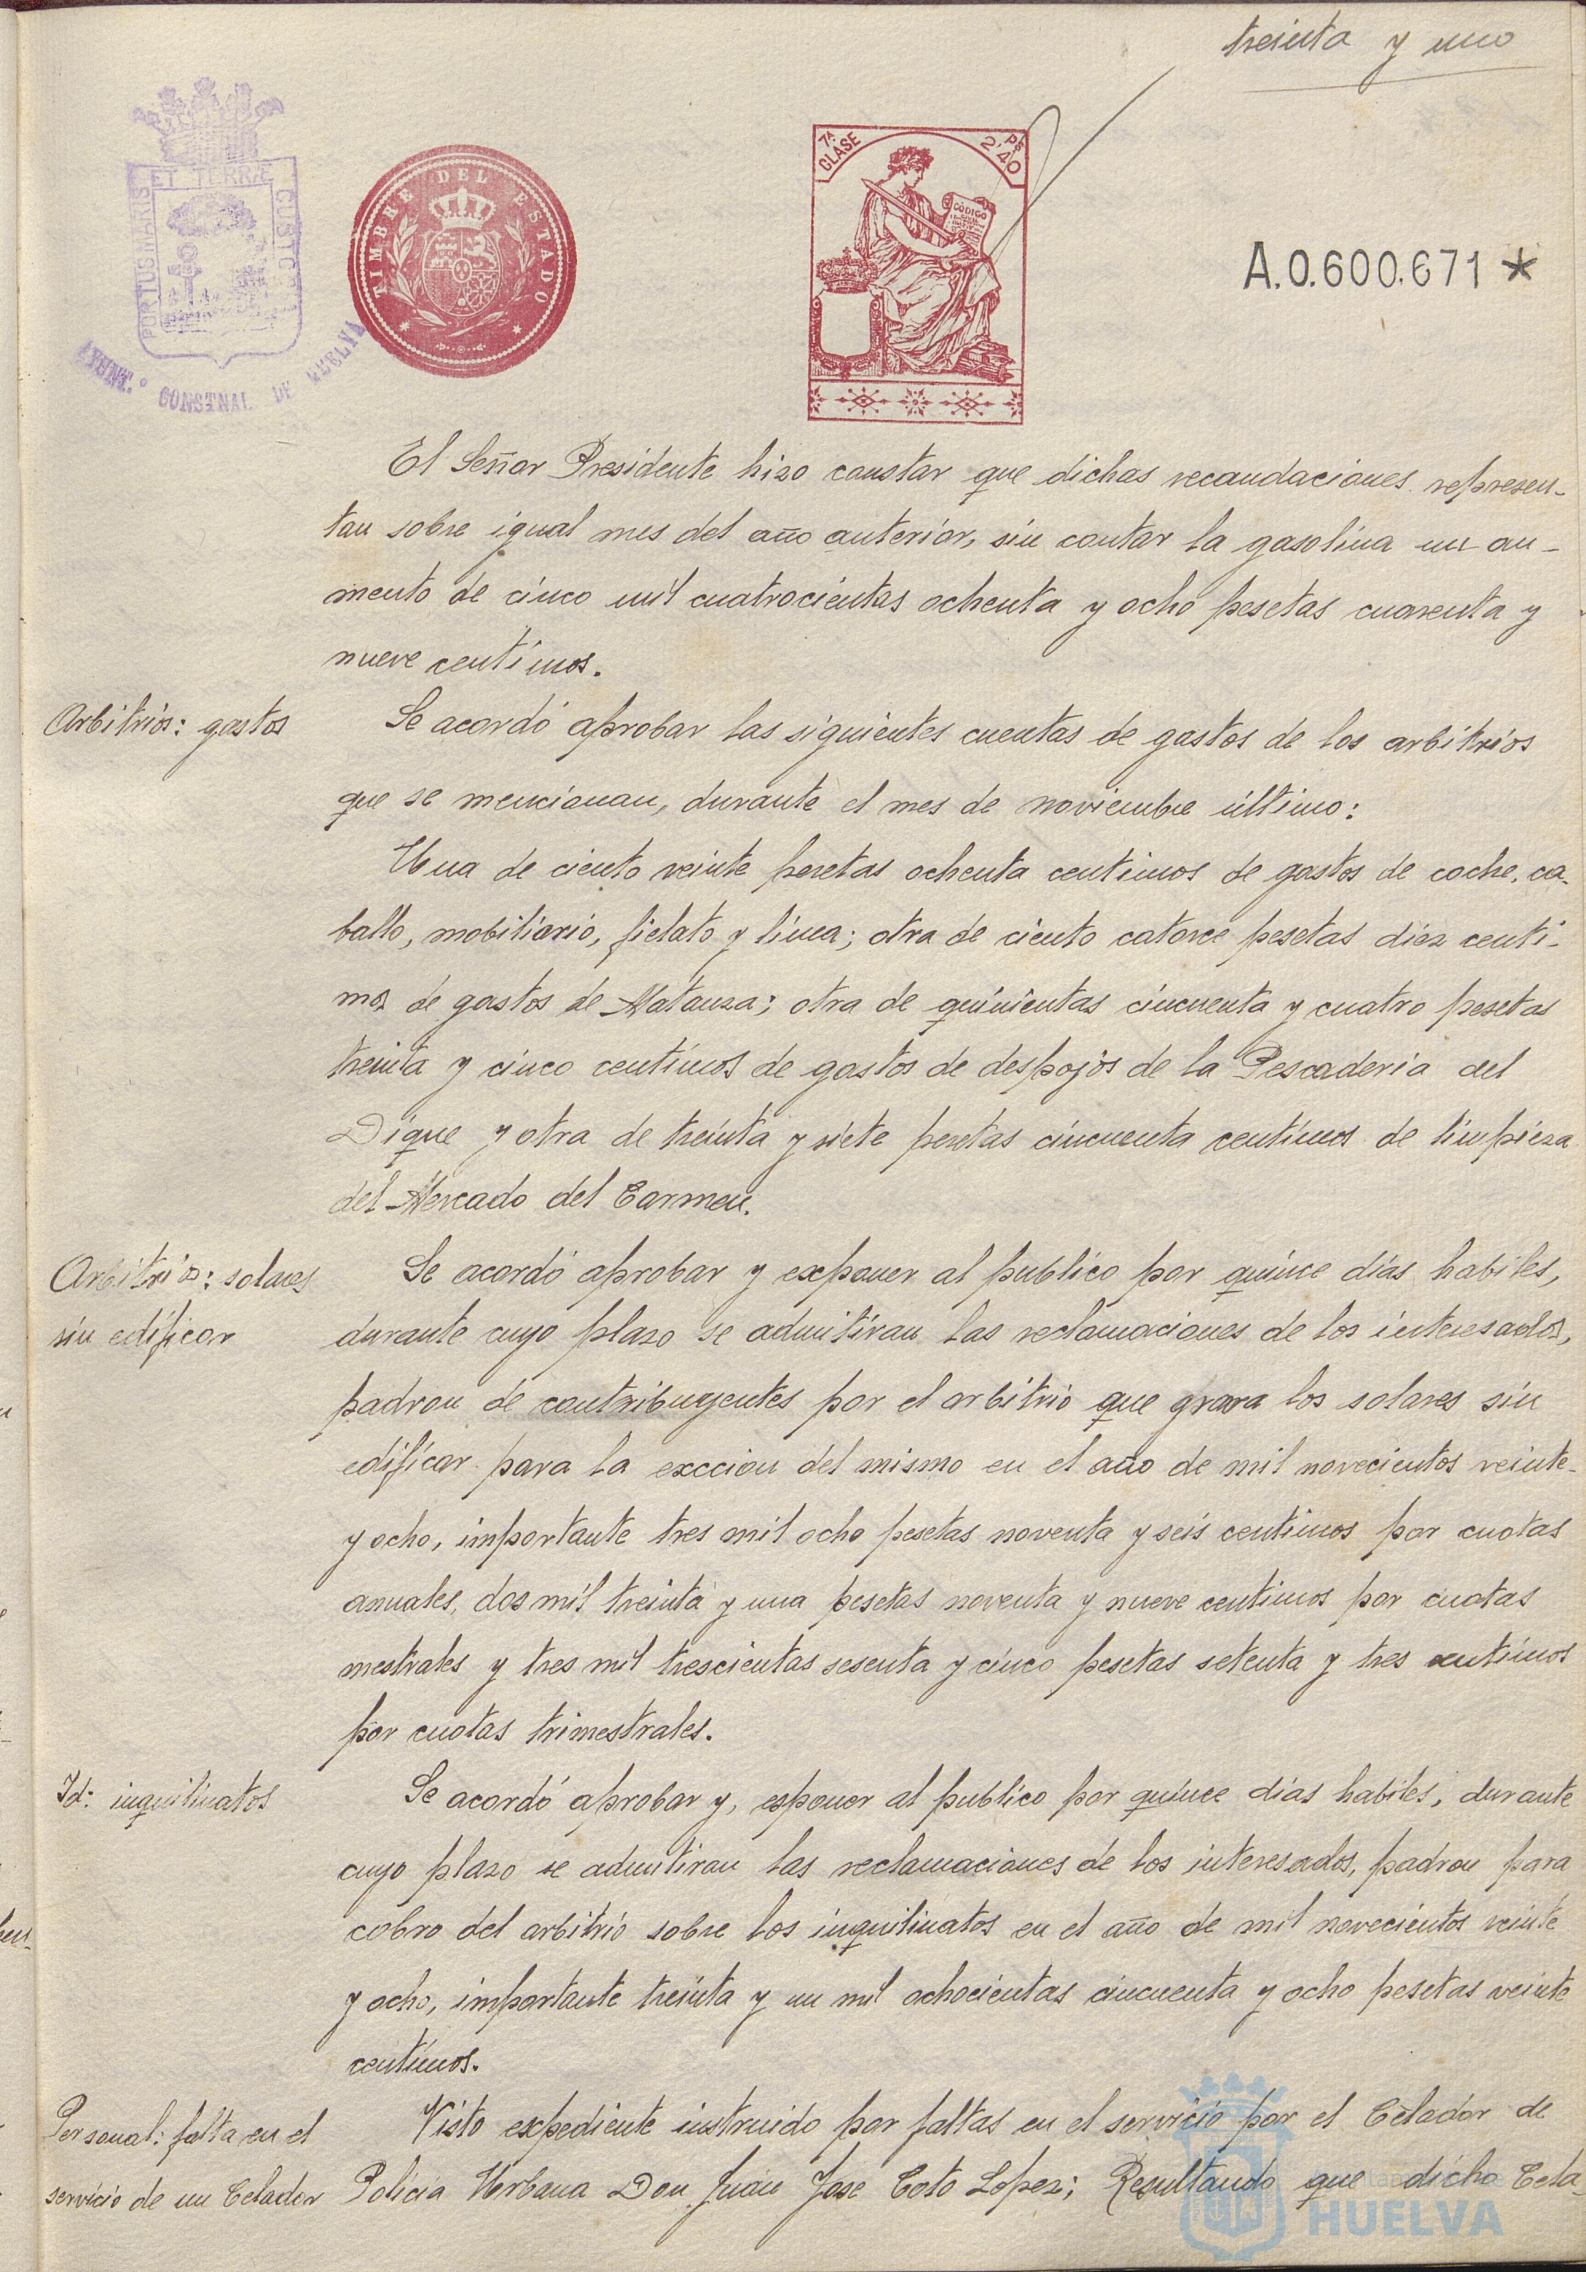 treinta y uno
PORTUS MARIS ET TERRÆ CUSTO
AYUNT.º CONST.NAL DE HUELVA
TIMBRE DEL ESTADO
7ª CLASE
PS 2'40
CODIGO
A.0.600.671 *
El Señor Presidente hizo constar que dichas recaudaciones represen-
tan sobre igual mes del año anterior, sin contar la gasolina un au-
mento de cinco mil cuatrocientas ochenta y ocho pesetas cuarenta y
nueve centímos.
Arbitrios: gastos
Se acordó aprobar las siguientes cuentas de gastos de los arbitrios
que se mencionan, durante el mes de noviembre último:
Una de ciento veinte pesetas ochenta centimos de gastos de coche, ca-
ballo, mobiliario, fielato y línea; otra de ciento catorce pesetas diez centi-
mos de gastos de Matanza; otra de quinientas cincuenta y cuatro pesetas
treinta y cinco centímos de gastos de despojos de la Pescaderia del
Dique y otra de treinta y siete pesetas cincuenta centímos de limpieza
del Mercado del Carmen.
Arbitrios: solares
sin edificar
Se acordó aprobar y exponer al publico por quince días habiles,
durante cuyo plazo se admitiran las reclamaciones de los interesados,
padron de contribuyentes por el arbitrio que grava los solares sin
edificar para la exccion del mismo en el año de mil novecientos veinte-
y ocho, importante tres mil ocho pesetas noventa y seis centimos por cuotas
anuales, dos mil treinta y una pesetas noventa y nueve centimos por cuotas
mestrales y tres mil trescientas sesenta y cinco pesetas setenta y tres centímos
por cuotas trimestrales.
Id: inquilinatos
Se acordó aprobar y, esponer al publico por quince dias habiles, durante
cuyo plazo se admitiran las reclamaciones de los interesados, padron para
cobro del arbitrio sobre los inquilinatos en el año de mil novecientos veinte
y ocho, importante treinta y un mil ochocientas cincuenta y ocho pesetas veinte
centímos.
Personal: falta en el
servicio de un Celador
Visto expediente instruido por faltas en el servicio por el Celador de
Policia Urbana Don Juan Jose Coto Lopez; Resultando que dicho Cela-
HUELVA